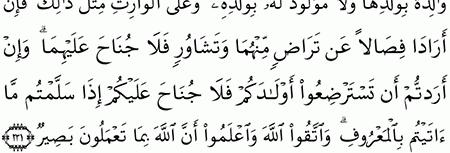 وَٰلِدَةٌۢ بِوَلَدِهَا وَلَا مَوْلُودٌ لَّهُۥ بِوَلَدِهِۦ ۚ وَعَلَى ٱلْوَارِثِ مِثْلُ ذَٰلِكَ ۗ فَإِنْ
أَرَادَا فِصَالًا عَن تَرَاضٍ مِّنْهُمَا وَتَشَاوُرٍ فَلَا جُنَاحَ عَلَيْهِمَا ۗ وَإِنْ
أَرَدتُّمْ أَن تَسْتَرْضِعُوٓا۟ أَوْلَٰدَكُمْ فَلَا جُنَاحَ عَلَيْكُمْ إِذَا سَلَّمْتُم مَّآ
ءَاتَيْتُم بِٱلْمَعْرُوفِ ۗ وَٱتَّقُوا۟ ٱللَّهَ وَٱعْلَمُوٓا۟ أَنَّ ٱللَّهَ بِمَا تَعْمَلُونَ بَصِيرٌ